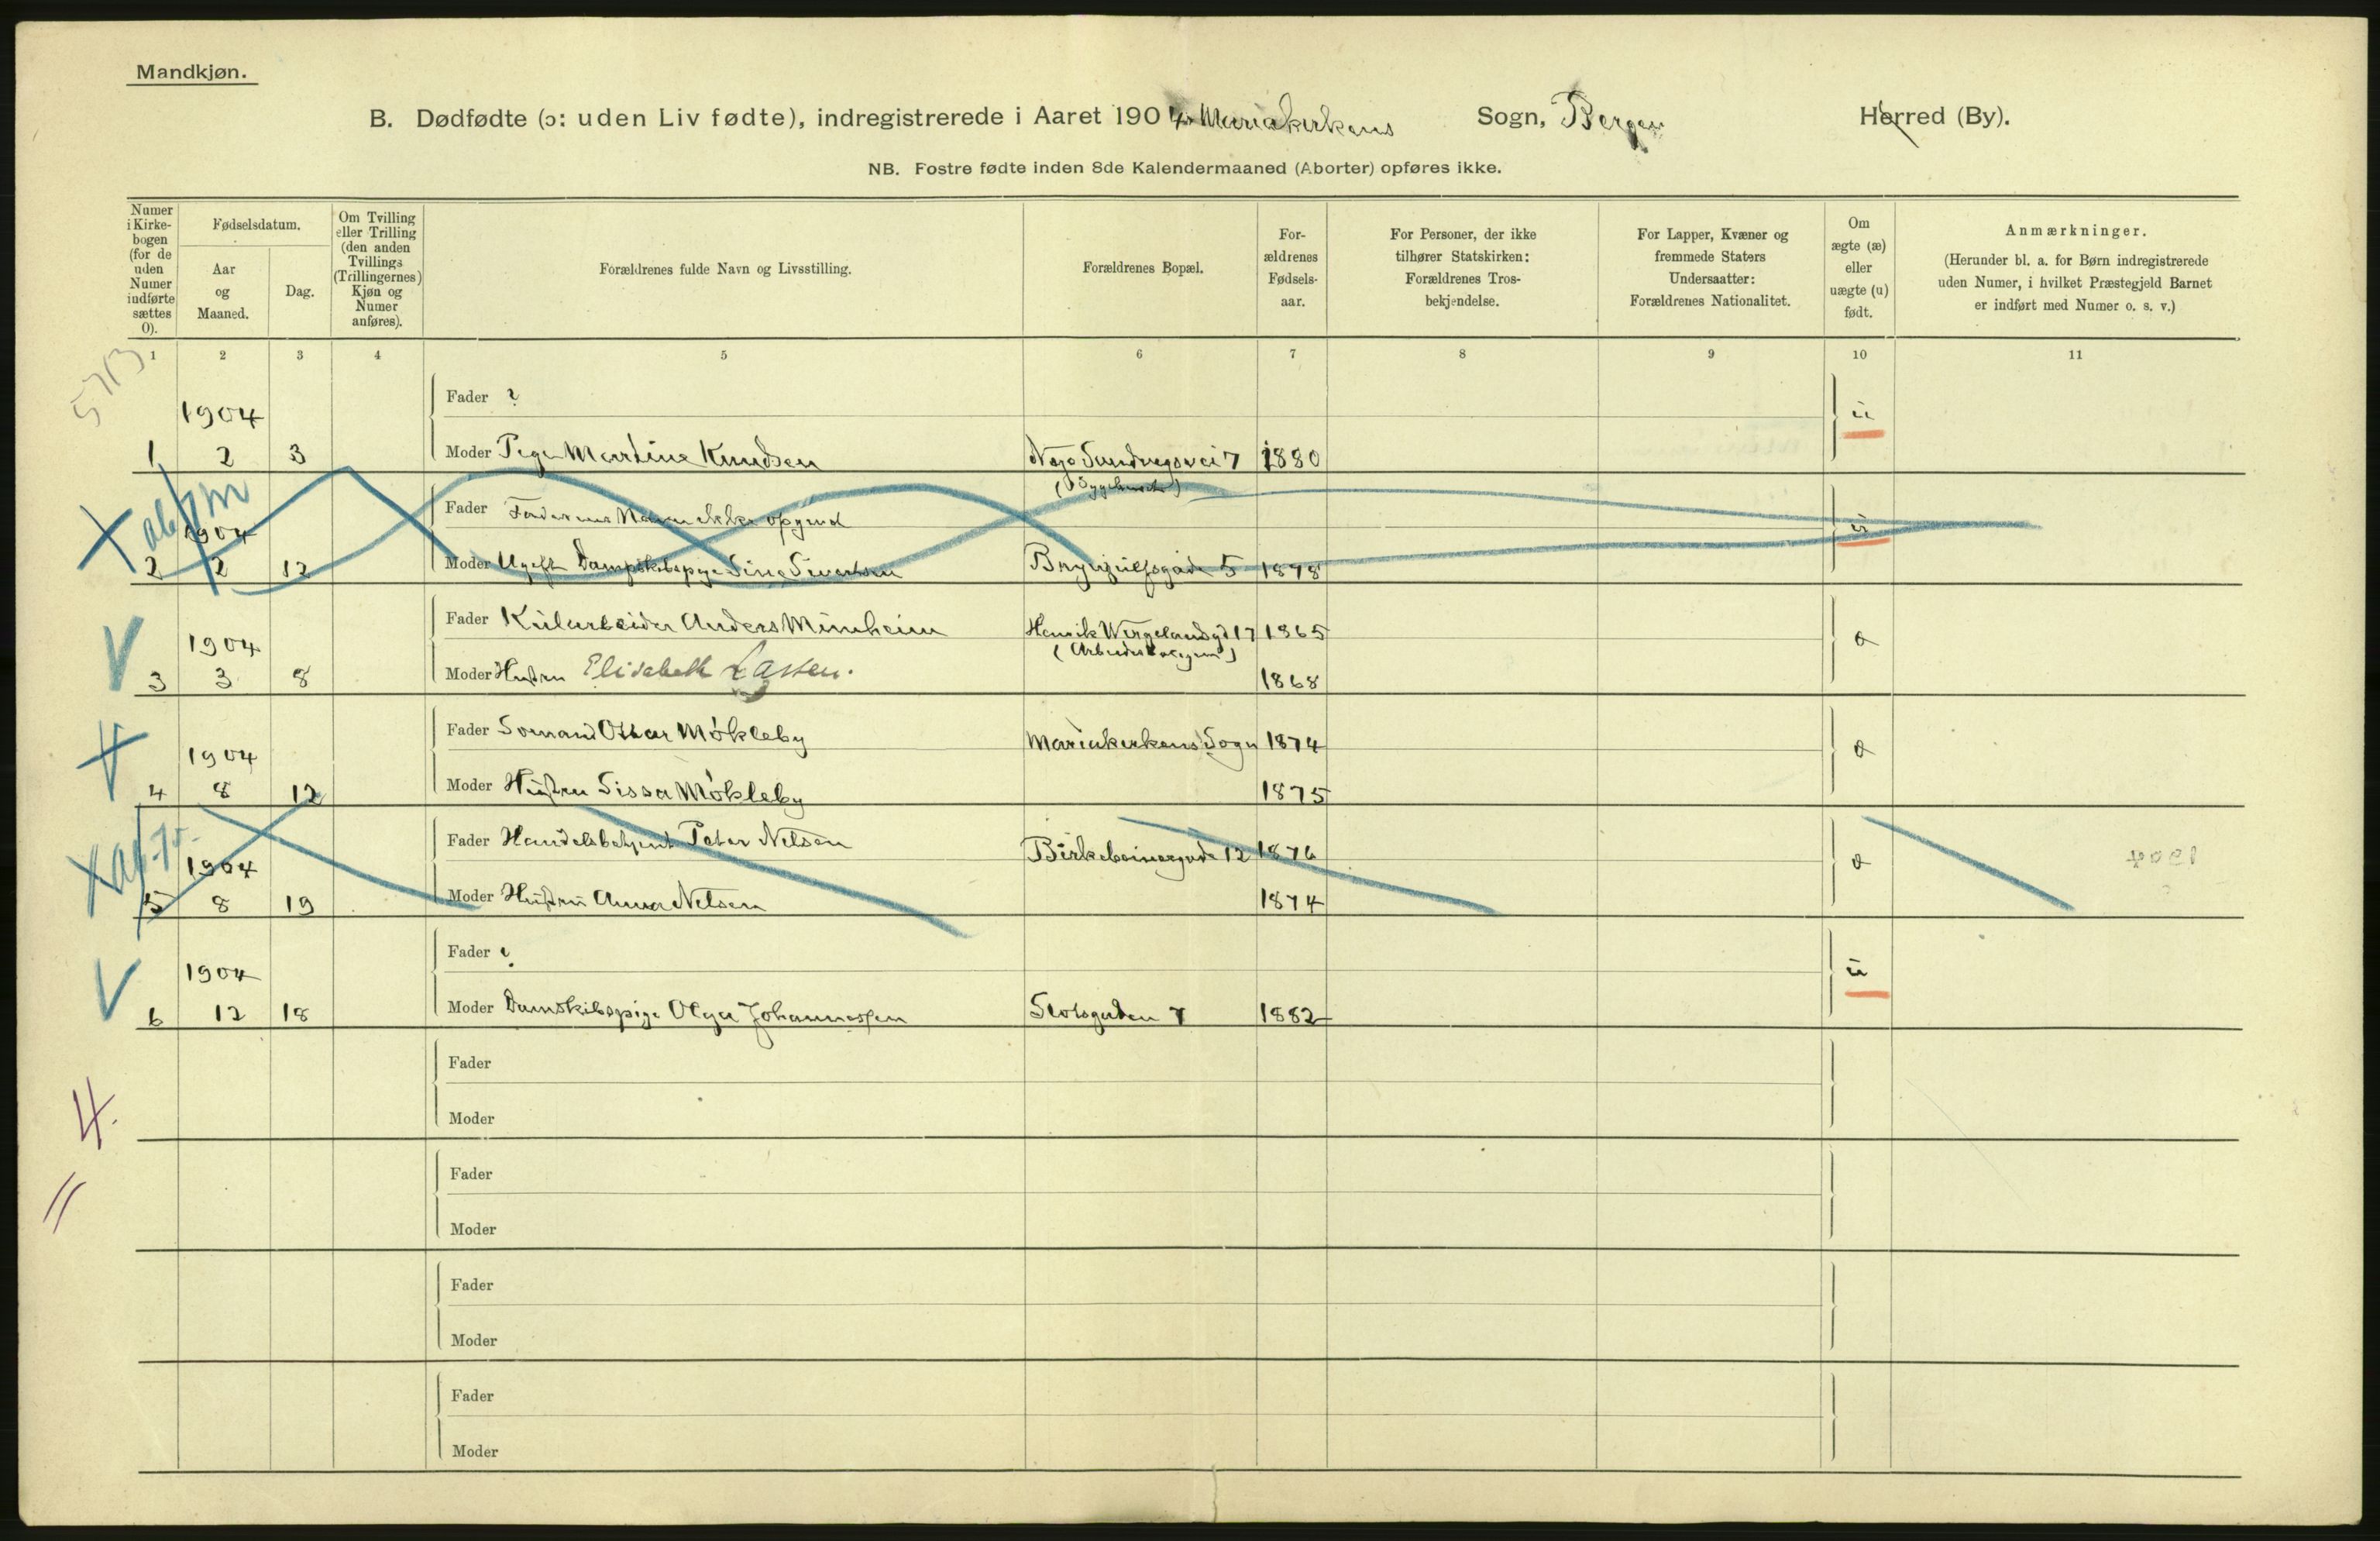 Mandkjøn.
B. Dødfødte (ɔ: uden Liv fødte), indregistrerede i Aaret 1904 Mariakirkens Sogn, Bergen Herred (By).
NB. Fostre fødte inden 8de Kalendermaaned (Aborter) opføres ikke.
Numer i Kirke-bogen (for de uden Numer indførte sættes 0).
Fødselsdatum.
Aar og Maaned.
Dag.
Om Tvilling eller Trilling (den anden Tvillings (Trillingernes) Kjøn og Numer anføres).
Forældrenes fulde Navn og Livsstilling.
Forældrenes Bopæl.
For-ældrenes Fødsels-aar.
For Personer, der ikke tilhører Statskirken: Forældrenes Tros-bekjendelse.
For Lapper, Kvæner og fremmede Staters Undersaatter: Forældrenes Nationalitet.
Om ægte (æ) eller uægte (u) født.
Anmærkninger.
(Herunder bl. a. for Børn indregistrerede uden Numer, i hvilket Præstegjeld Barnet er indført med Numer o. s. v.)
1 2 3 4 5 6 7 8 9 10 11
5713
Fader ?
1904 u
1 2 3 Moder Pige Martine Knudsen Nye Sandvigsvei 7 1880
Fader Faderens Navn ikke opgivet
1904 u
2 2 12 Moder Ugift Dampskibspige Sina Sivertsen Brynjulfsgade 5 1878
V
Fader Anders Henrik Wergelandsgd 17 1865
1904 æ
3 3 8 Moder Hustru Elisabeth Lassen. 1868
Fader Sømand Ottar Møkleby Mariakirkens Sogn 1874
1904 æ
4 8 12 Moder Hustru Sissa Møkleby 1875
Fader Handelsbetjent Peter Nelson Birkebeinergade 12 1876
1904 æ
5 8 19 Moder Hustru Anna Nelson 1874
V
Fader ?
1904 u
6 12 18 Moder Damskibspige Olga Johannessen Slotsgaden 7 1882
Fader
4.
Moder
Fader
Moder
Fader
Moder
Fader
Moder